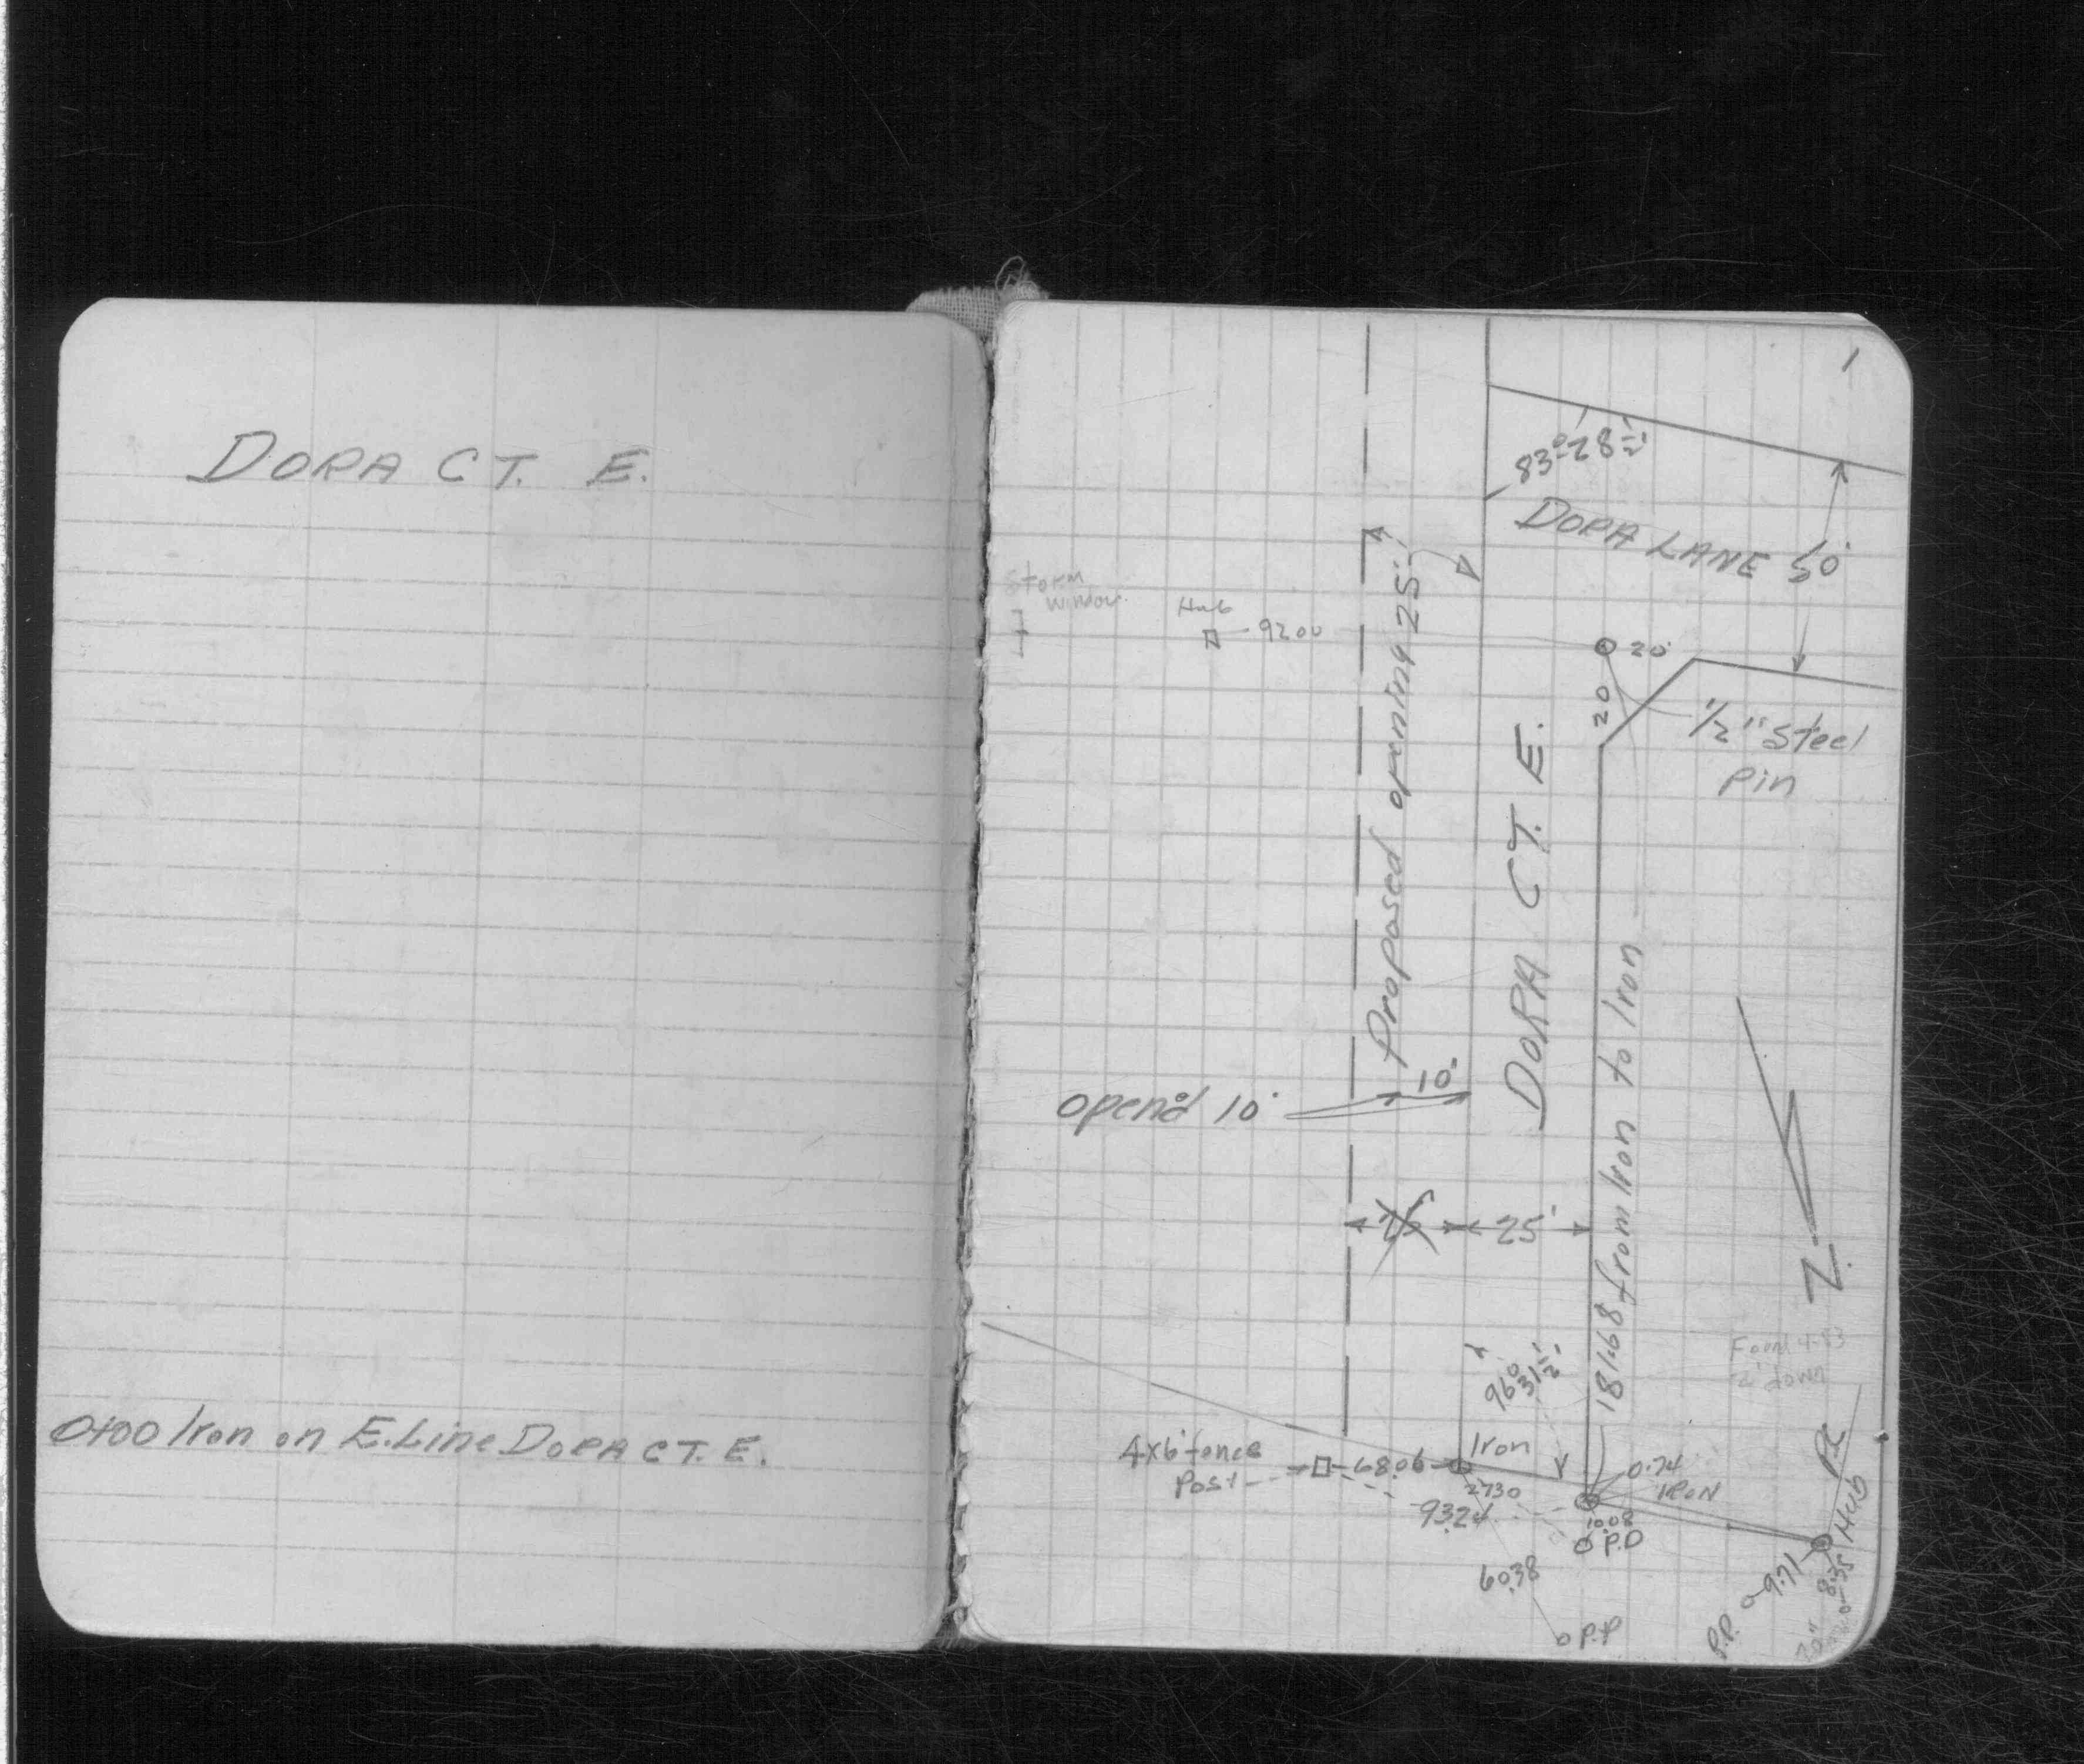 DORA CT. E.
0+00 Iron on E. Line DORA CT. E.
1
83°-28½'
DORA LANE 50'
Storm
Window
Hub
92.00
Proposed opening 25'
20'
20
1/2" Steel
Pin
DORA CT. E.
181.68 from Iron to Iron
10'
open'd 10'
25'
25'
N
Found 4-83
down
96° 31½'
4x6 fence
Post
68.06
Iron
27.30
93.24
0.74
IRON
10.08
P.P
60.38
P.P
P.P.
9.71
8.35
Hub
20"